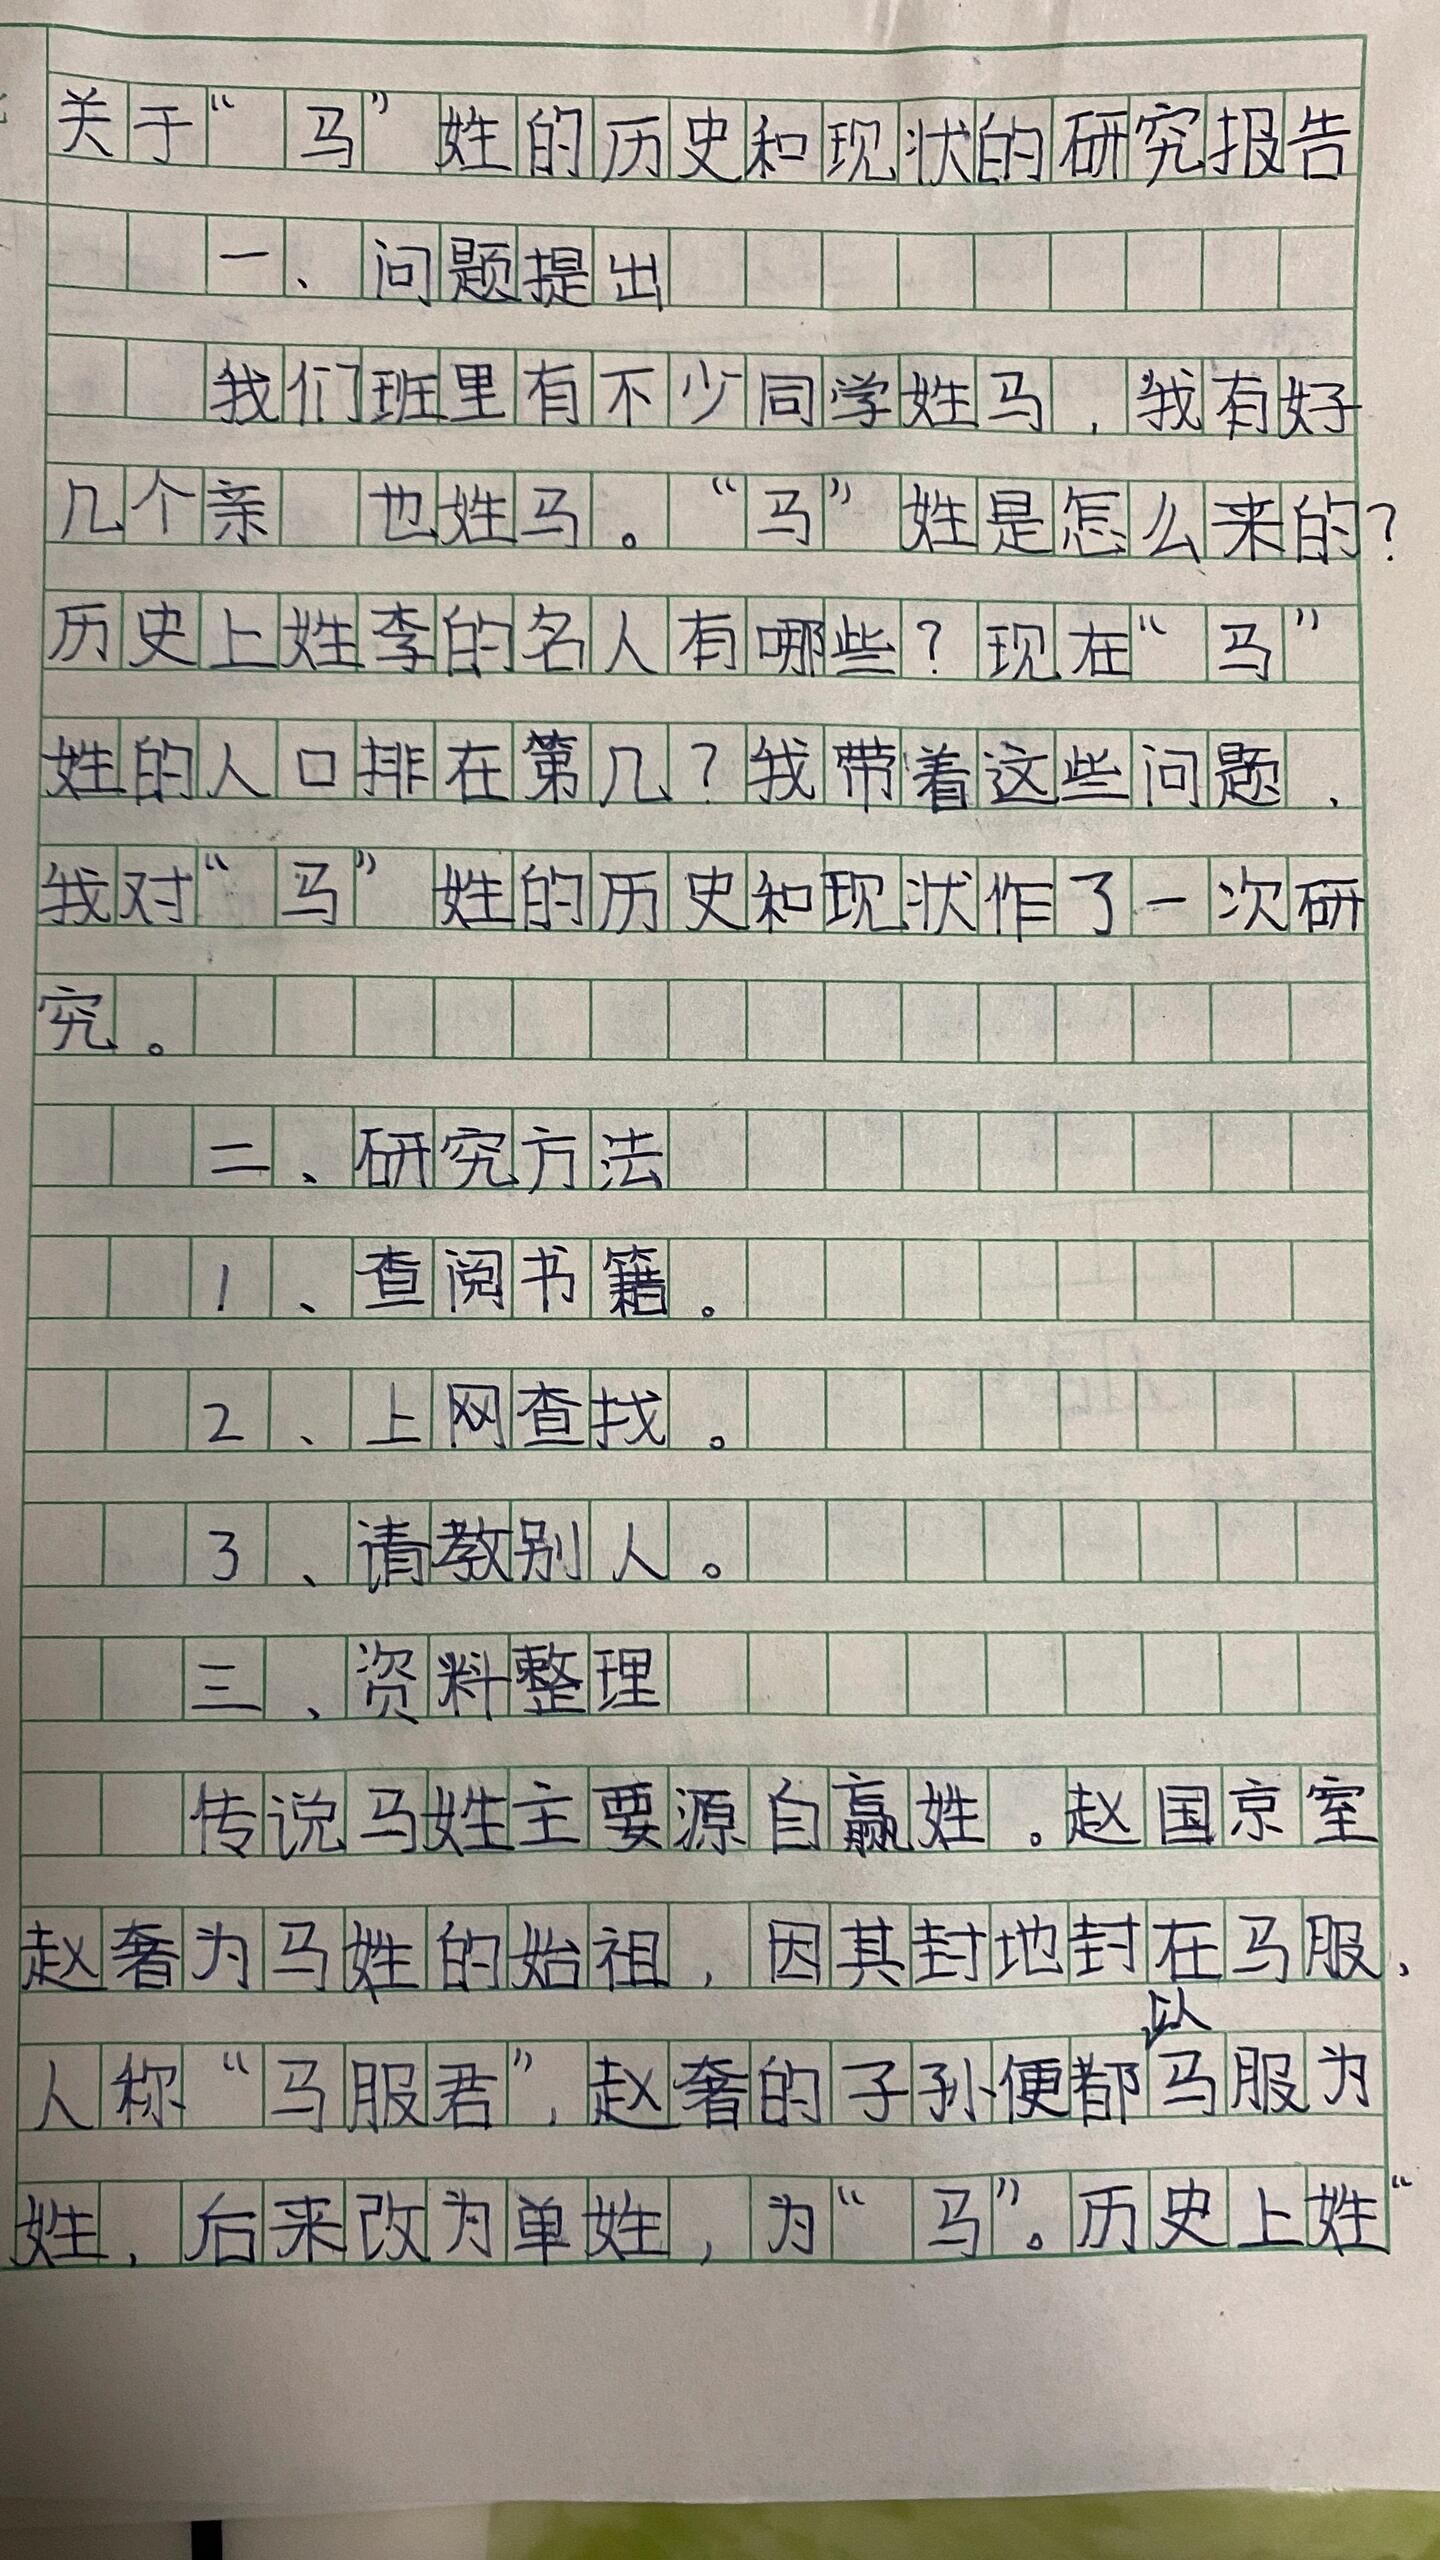 关于“马”姓的历史和现状的研究报告
一、问题提出
我们班里有不少同学姓马，我有好
几个亲 也姓马。“马”姓是怎么来的?
历史上姓李的名人有哪些?现在“马”
姓的人口排在第几?我带着这些问题，
我对“马”姓的历史和现状作了一次研
究。
二、研究方法
1、查阅书籍。
2、上网查找。
3、请教别人。
三、资料整理
传说马姓主要源自嬴姓。赵国京室
赵奢为马姓的始祖，因其封地封在马服，
人称“马服君”，赵奢的子孙便都以马服为
姓，后来改为单姓，为“马”。历史上姓“